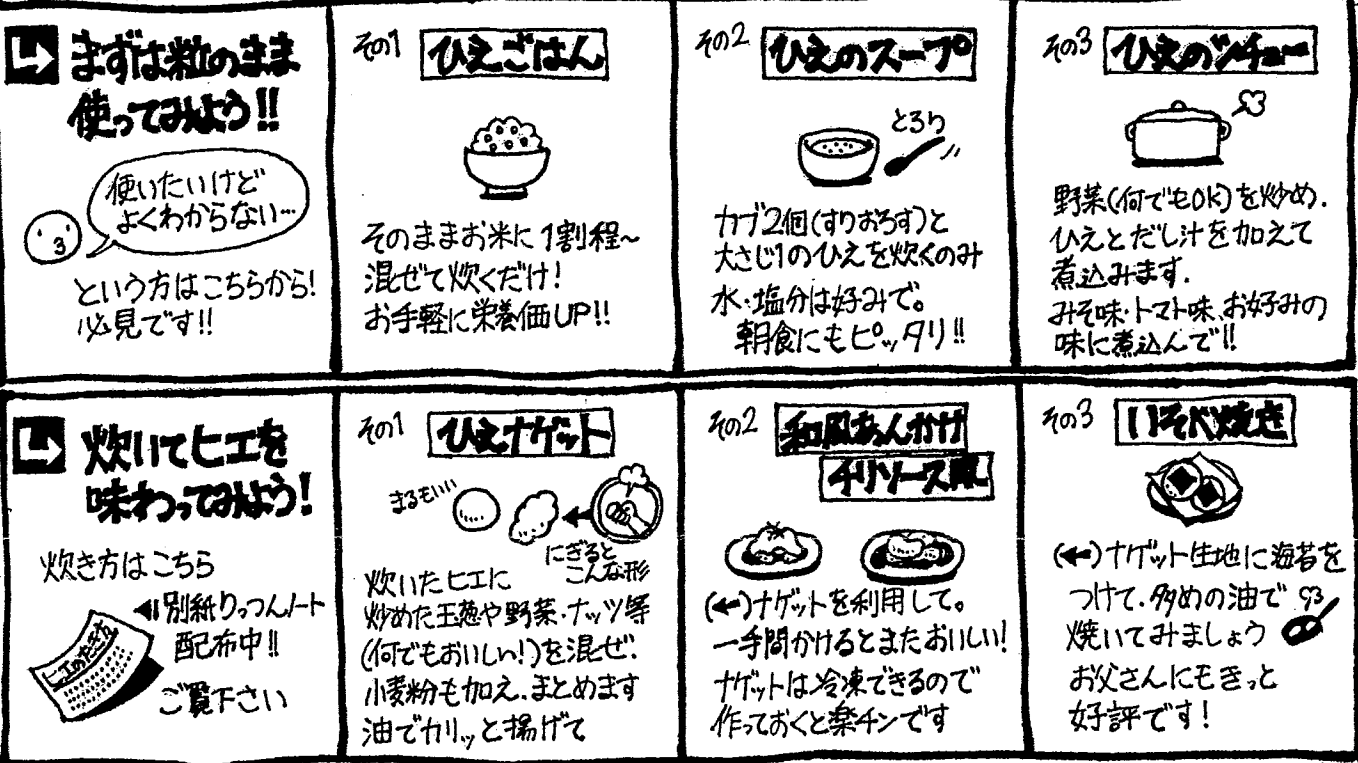 まずは粒のまま
使ってみよう!!
使いたいけど
よくわからない…
という方はこちらから!
必見です!!
その1
ひえごはん
そのままお米に1割程~
混ぜて炊くだけ!
お手軽に栄養価UP!!
その2
ひえのスープ
とろり
カブ2個(すりおろす)と
大さじ1のひえを炊くのみ
水・塩分は好みで。
朝食にもピッタリ!!
その3
ひえのシチュー
野菜(何でもOK)を炒め.
ひえとだし汁を加えて
煮込みます.
みそ味・トマト味、お好みの
味に煮込んで!!
炊いてヒエを
味わってみよう!
炊き方はこちら
別紙りっつんノート
配布中!!
ご覧下さい
ヒエのたき方
その1
ひえナゲット
まるもいい
にぎると
こんな形
炊いたヒエに
炒めた玉葱や野菜・ナッツ等
(何でもおいしい!)を混ぜ.
小麦粉も加え.まとめます
油でカリッと揚げて
その2
和風あんかけ
チリソース風
(←)ナゲットを利用して。
一手間かけるとまたおいしい!
ナゲットは冷凍できるので
作っておくと楽チンです
その3
いそべ焼き
(←)ナゲット生地に海苔を
つけて.多めの油で
焼いてみましょう
お父さんにもきっと
好評です!